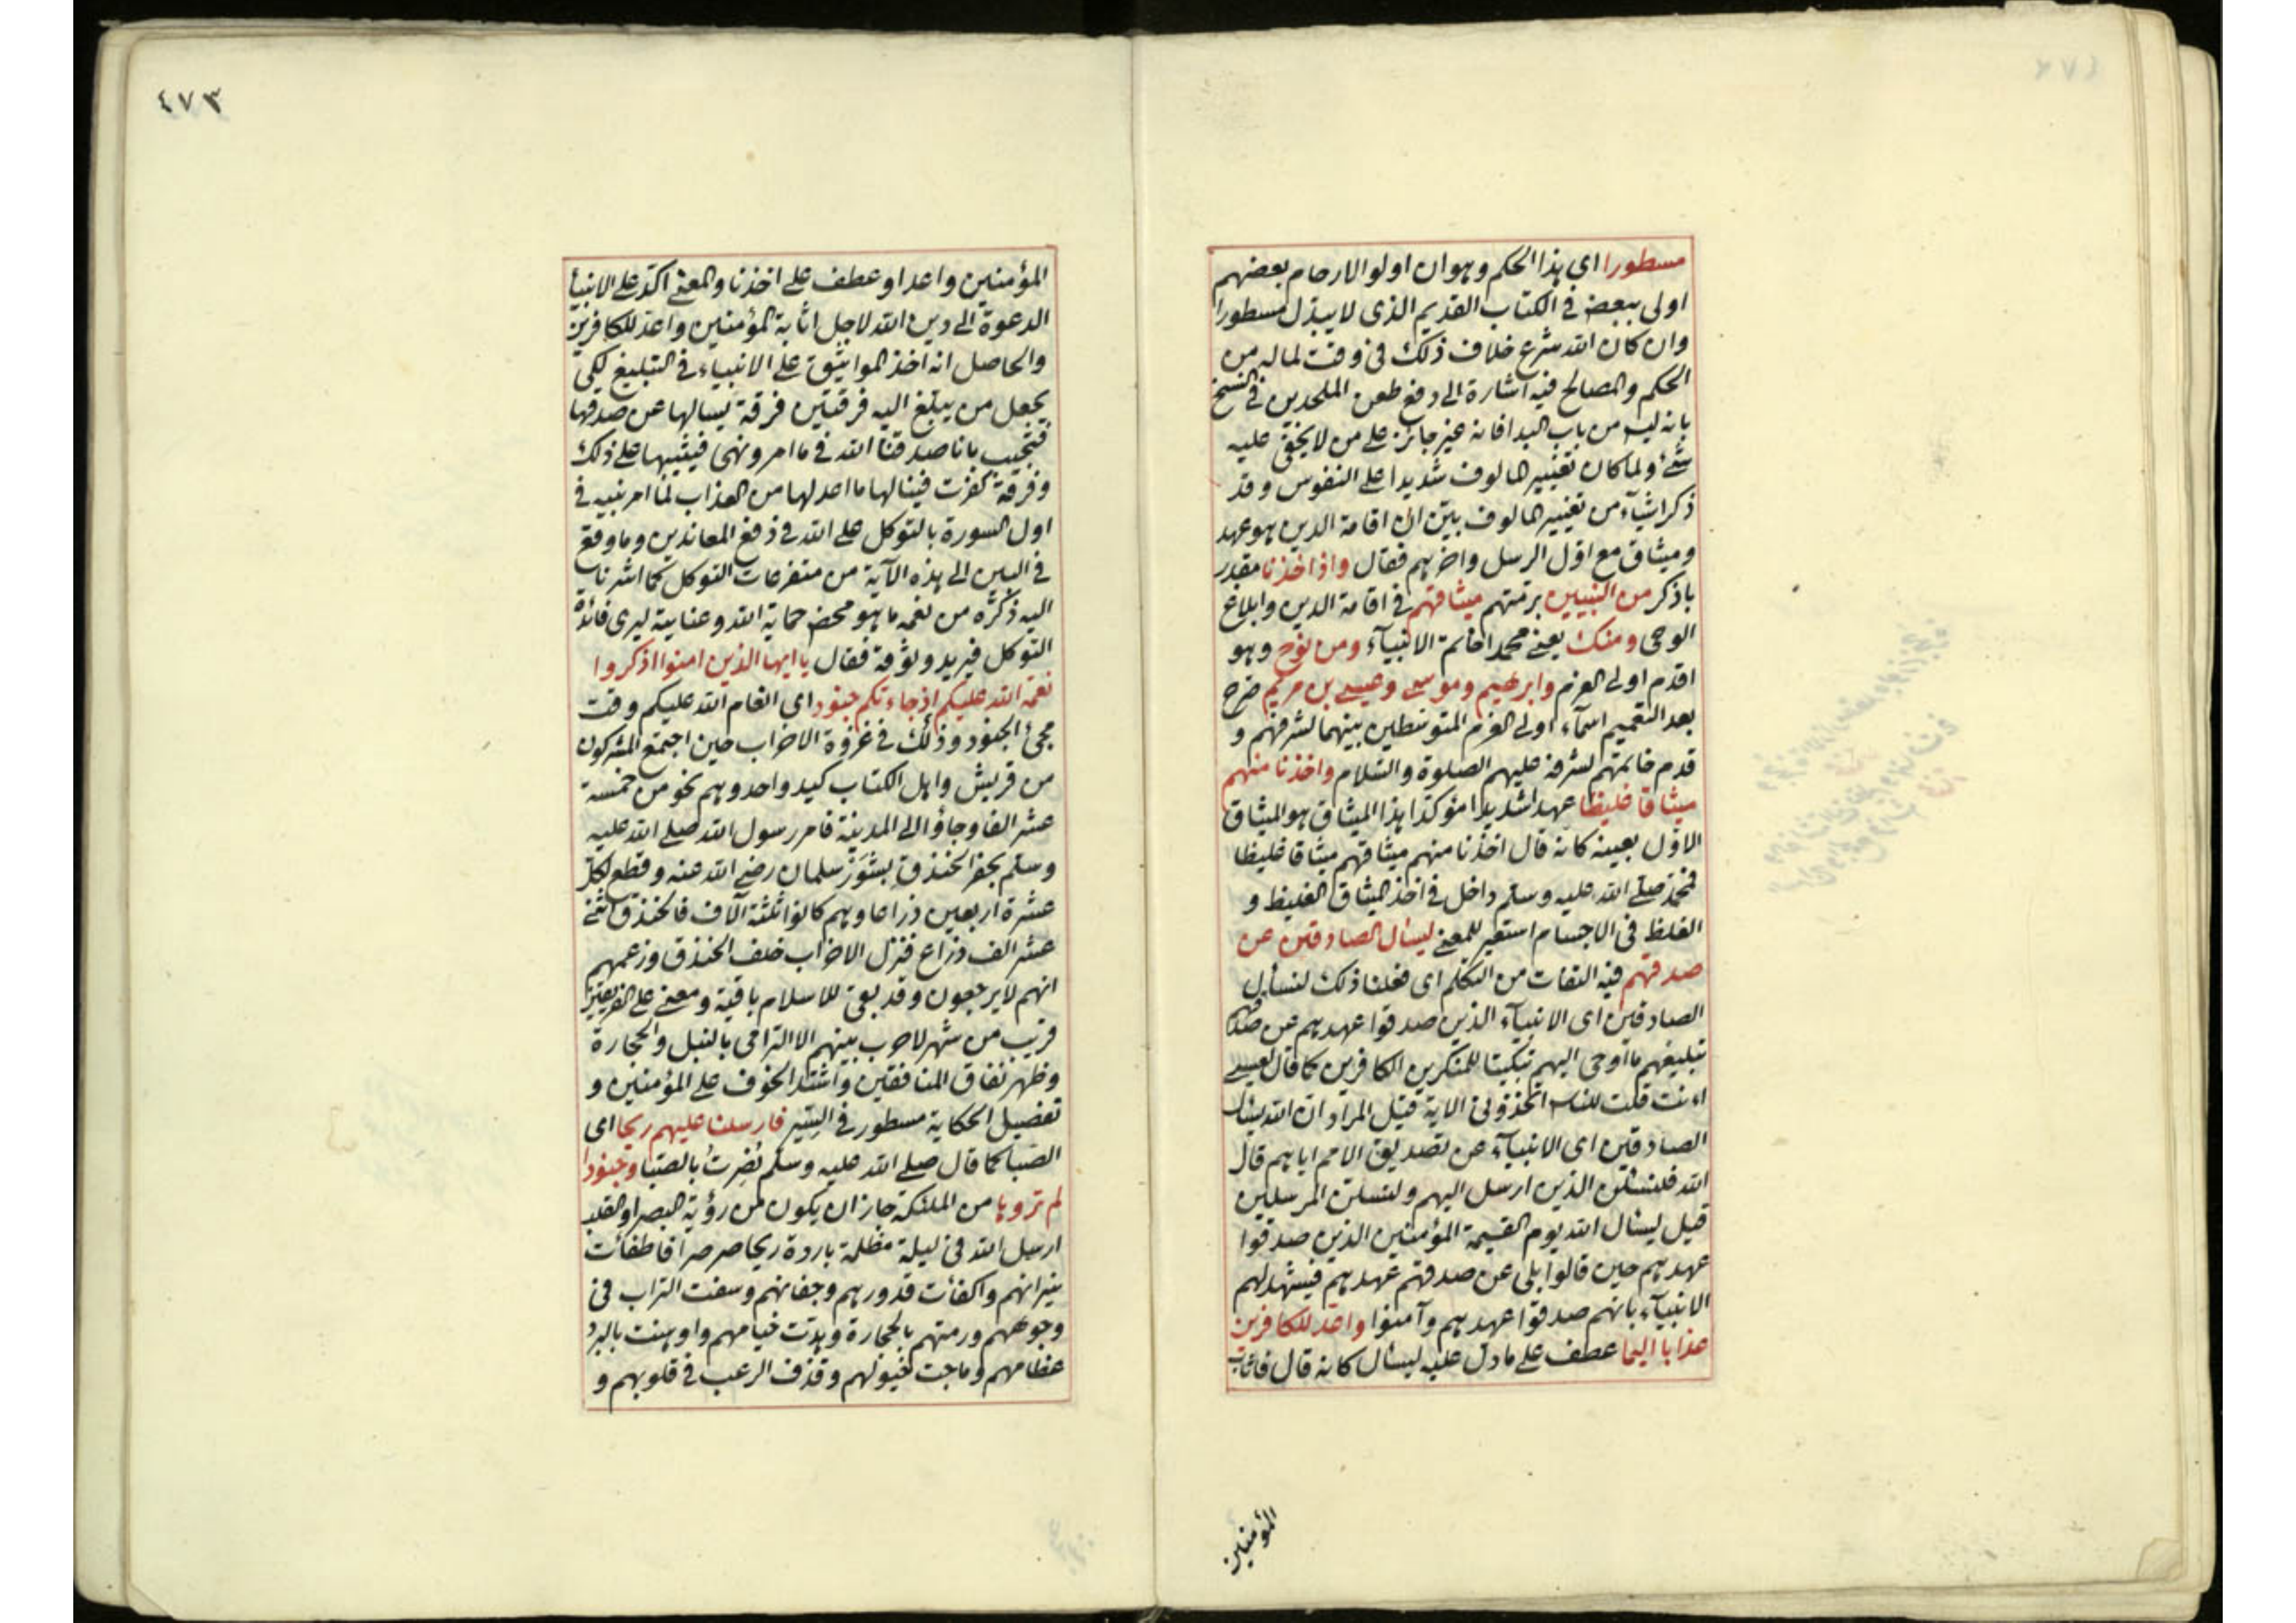 مسطورا اي هذا الحكم وهو ان اولو الارحام بعضهم
اولى ببعض في الكتاب القديم الذي لا يبدل مسطورا
وان كان الله شرع خلاف ذلك في وقت لما له من
الحكم والمصالح فيه اشارة الى دفع طعن الملحدين في النسخ
بانه ليس من باب البدا فانه غير جائز على من لا يخفى عليه
شئ ولما كان تغيير المالوف شديدا على النفوس وقد
ذكر اشيآء من تغيير المالوف بين ان اقامة الدين هو عهد
وميثاق مع اول الرسل واخرهم فقال واذ اخذنا مقدر
باذكر من النبيين برمتهم ميثاقهم في اقامة الدين وابلاغ
الوحى ومنك يعنے محمدا خاتم الانبيآء ومن نوح وهو
اقدم اولى العزم وابرهيم وموسى وعيسى بن مريم صرح
بعد التعميم اسمآء اولى العزم المتوسطين بينهما لشرفهم و
قدم خاتمتهم لشرفه عليهم الصلوة والسلام واخذنا منهم
ميثاقا غليظا عهدا شديدا مؤكدا هذا الميثاق هو الميثاق
الاول بعينه كانه قال اخذنا منهم ميثاقهم ميثاقا غليظا
فمحمد صلى الله عليه وسلم داخل في اخذ الميثاق الغليظ و
الغلظ فى الاجسام استعير للمعنے ليسال الصادقين عن
صدقهم فيه التفات من التكلم اى فعلنا ذلك لنسأل
الصادقين اى الانبيآء الذين صدقوا عهدهم عن صدقهم
تبليغهم ما اوحى اليهم تبكيتا للمنكرين الكافرين كما قال لعيسى
اءنت قلت للناس اتخذونى الاية قيل المراد ان الله يسال
الصادقين اى الانبيآء عن تصديق الامم اياهم قال
الله فلنسئلن الذين ارسل اليهم ولنسئلن المرسلين
قيل ليسال الله يوم القيمة المؤمنين الذين صدقوا
عهدهم حين قالوا بلى عن صدقهم عهدهم فيشهد لهم
الانبيآء بانهم صدقوا عهدهم وآمنوا واعد للكافرين
عذابا اليما عطف على ما دل عليه ليسال كانه قال فاثاب
المؤمنين
٤٧٣
المؤمنين واعد او عطف على اخذنا والمعنے اكد على الانبيا
الدعوة الى دين الله لاجل اثابة المؤمنين واعد للكافرين
والحاصل انه اخذ المواثيق على الانبياء في التبليغ لكى
يجعل من يبلغ اليه فرقتين فرقة يسالها عن صدقها
فتجيب بانا صدقنا الله في ما امر ونهى فيثيبها على ذلك
وفرقة كفرت فينالها ما اعد لها من العذاب لما امر نبيه في
اول السورة بالتوكل على الله في دفع المعاندين وما وقع
في البين الى هذه الآية من متفرعات التوكل كما اشرنا
اليه ذكره من نعمه ما هو محض حماية الله وعنايته ليرى فائدة
التوكل فيريد وثوقه فقال يا ايها الذين امنوا اذكروا
نعمة الله عليكم اذ جاءتكم جنود اى انعام الله عليكم وقت
مجئ الجنود وذلك في غزوة الاحزاب حين اجتمع المشركون
من قريش واهل الكتاب كيد واحد وهم نحو من خمسة
عشر الفا وجاؤا الى المدينة فامر رسول الله صلى الله عليه
وسلم بحفر الخندق بشور سلمان رضى الله عنه وقطع لكل
عشرة اربعين ذراعا وهم كانوا ثلثة آلاف فالخندق اثنے
عشر الف ذراع فنزل الاحزاب خلف الخندق وزعمهم
انهم لا يرجعون وقد بقى للاسلام باقية ومضى على الفريقين
قريب من شهر لا حرب بينهم الا الترامى بالنبل والحجارة
وظهر نفاق المنافقين واشتد الخوف على المؤمنين و
تفصيل الحكاية مسطور في السير فارسلنا عليهم ريحا اى
الصبا كما قال صلى الله عليه وسلم نصرت بالصبا وجنودا
لم تروها من الملئكة جاز ان يكون من رؤية البصر او القلب
ارسل الله في ليلة مظلمة باردة ريحا صرصرا فاطفات
نيرانهم واكفات قدورهم وجفانهم وسفت التراب فى
وجوههم ورمتهم بالحجارة وهدت خيامهم واوهنت بالبرد
عظامهم وماجت خيولهم وقذف الرعب في قلوبهم و